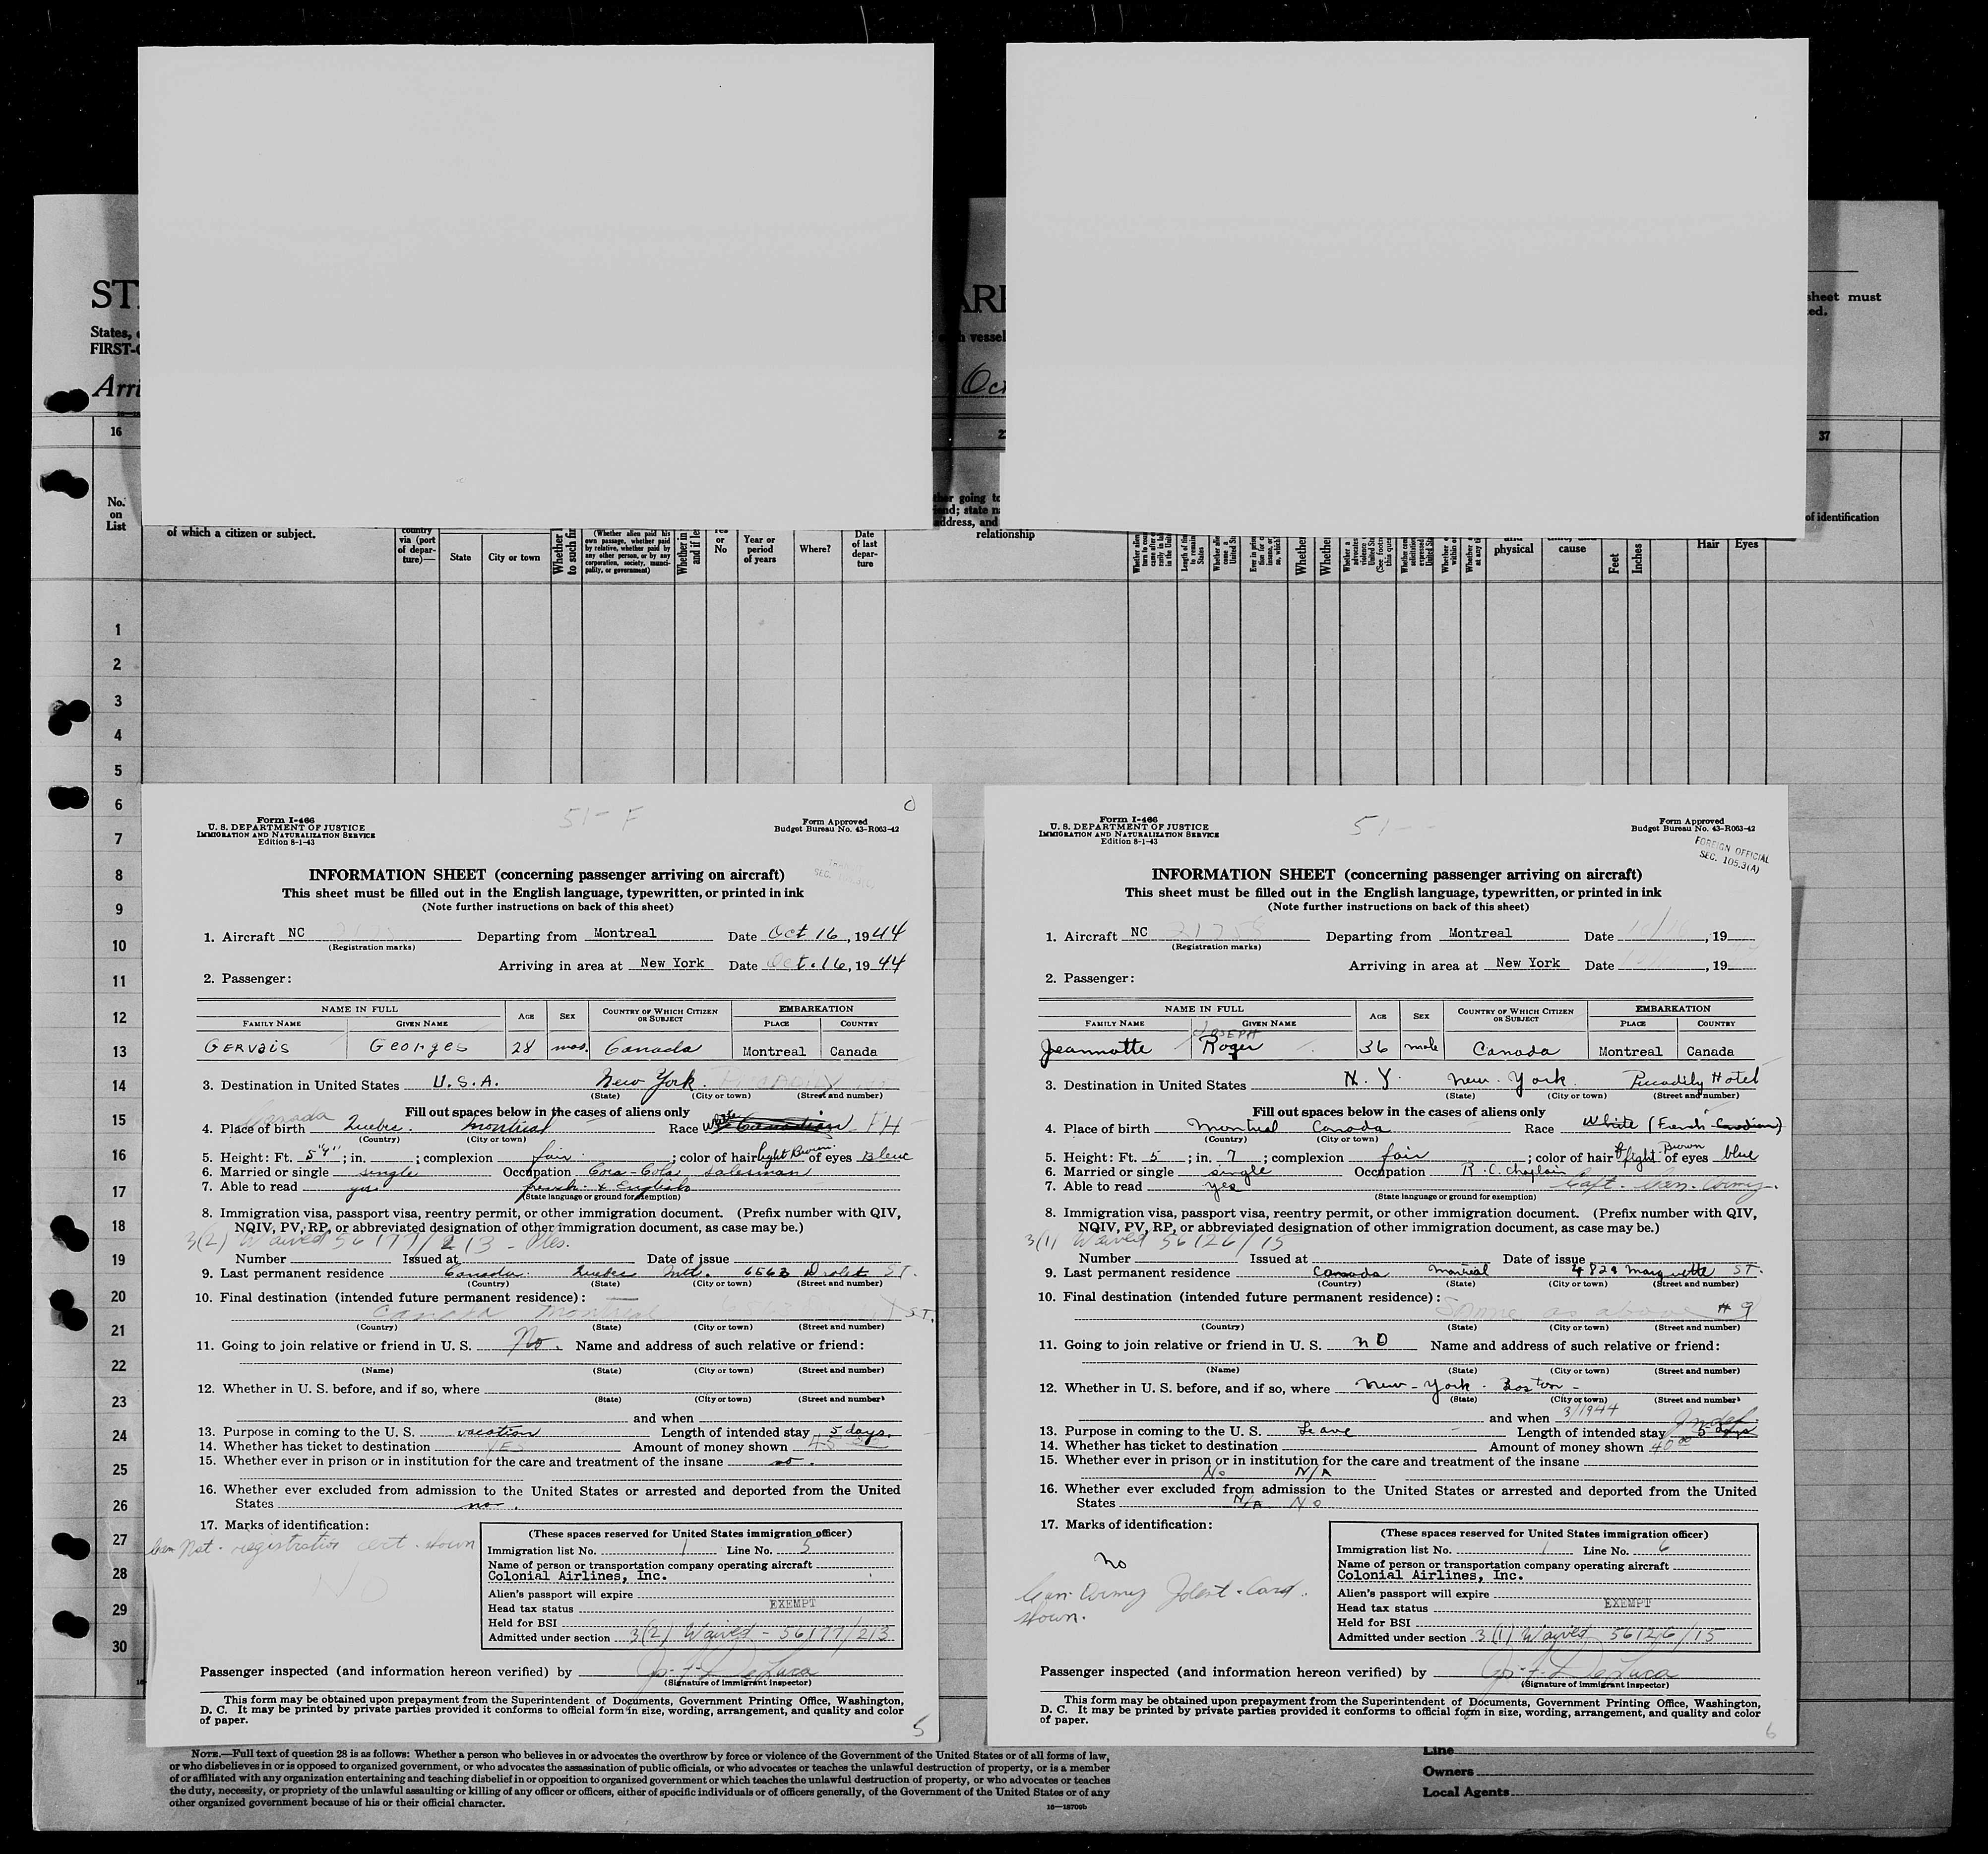 ST
ARI
sheet must
ed.
States,
h vessel
FIRST-C
Arri
Oct
16
2
37
No.
on
List
of which a citizen or subject.
country
via (port
of depar-
ture)—
State
City or town
Whether
to such fi
(Whether alien paid his
own passage, whether paid
by relative, whether paid by
any other person, or by any
corporation, society, munici-
pality, or government)
Whether in
and if le
or
No
Year or
period
of years
Where?
Date
of last
depar-
ture
ther going to
end; state n
address, and
relationship
Whether
Whether
and
physical
cause
Feet
Inches
Hair
Eyes
of identification
1
2
3
4
5
6
7
8
9
10
11
12
13
14
15
16
17
18
19
20
21
22
23
24
25
26
27
28
29
30
51- F
Form I-466
U. S. DEPARTMENT OF JUSTICE
IMMIGRATION AND NATURALIZATION SERVICE
Edition 8-1-43
Form Approved
Budget Bureau No. 43-R063-42
INFORMATION SHEET (concerning passenger arriving on aircraft)
This sheet must be filled out in the English language, typewritten, or printed in ink
(Note further instructions on back of this sheet)
1. Aircraft NC Departing from Montreal Date Oct. 16, 1944
(Registration marks)
Arriving in area at New York Date Oct. 16, 1944
2. Passenger:
NAME IN FULL
FAMILY NAME GIVEN NAME AGE SEX COUNTRY OF WHICH CITIZEN OR SUBJECT EMBARKATION PLACE COUNTRY
GERVAIS Georges 28 mas. Canada Montreal Canada
3. Destination in United States U.S.A. New York
(State) (City or town) (Street and number)
Fill out spaces below in the cases of aliens only
4. Place of birth Canada Quebec. Montreal Race White Canadian FH
(Country) (City or town)
5. Height: Ft. 5"4"; in. ; complexion fair ; color of hair light Brown of eyes Bleue
6. Married or single single Occupation Coca-Cola salesman
7. Able to read yes french & English
(State language or ground for exemption)
8. Immigration visa, passport visa, reentry permit, or other immigration document. (Prefix number with QIV,
NQIV, PV, RP, or abbreviated designation of other immigration document, as case may be.)
3(2) Waived 56177/213 -
Number Issued at Date of issue
9. Last permanent residence Canada Quebec Mtl. 6563 Drolet ST.
(Country) (State) (City or town) (Street and number)
10. Final destination (intended future permanent residence):
Canada Montreal ST.
(Country) (State) (City or town) (Street and number)
11. Going to join relative or friend in U. S. No. Name and address of such relative or friend:
(Name) (State) (City or town) (Street and number)
12. Whether in U. S. before, and if so, where
(State) (City or town) (Street and number)
and when
13. Purpose in coming to the U. S. vacation Length of intended stay 5 days.
14. Whether has ticket to destination YES Amount of money shown 45
15. Whether ever in prison or in institution for the care and treatment of the insane no.
16. Whether ever excluded from admission to the United States or arrested and deported from the United
States no.
17. Marks of identification:
Can Nat. registration cert. shown
NO
(These spaces reserved for United States immigration officer)
Immigration list No. 1 Line No. 5
Name of person or transportation company operating aircraft
Colonial Airlines, Inc.
Alien's passport will expire
Head tax status EXEMPT
Held for BSI
Admitted under section 3(2) Waived - 56177/213
Passenger inspected (and information hereon verified) by Jos. F. DeLuca
(Signature of immigrant inspector)
This form may be obtained upon prepayment from the Superintendent of Documents, Government Printing Office, Washington,
D. C. It may be printed by private parties provided it conforms to official form in size, wording, arrangement, and quality and color
of paper.
5
51--
Form I-466
U. S. DEPARTMENT OF JUSTICE
IMMIGRATION AND NATURALIZATION SERVICE
Edition 8-1-43
Form Approved
Budget Bureau No. 43-R063-42
FOREIGN OFFICIAL
SEC. 105.3(A)
INFORMATION SHEET (concerning passenger arriving on aircraft)
This sheet must be filled out in the English language, typewritten, or printed in ink
(Note further instructions on back of this sheet)
1. Aircraft NC 21758 Departing from Montreal Date 10/16, 19
(Registration marks)
Arriving in area at New York Date , 19
2. Passenger:
NAME IN FULL
FAMILY NAME GIVEN NAME AGE SEX COUNTRY OF WHICH CITIZEN OR SUBJECT EMBARKATION PLACE COUNTRY
Jeannotte JOSEPH Roger 36 male Canada Montreal Canada
3. Destination in United States N.Y. New-York. Piccadily Hotel
(State) (City or town) (Street and number)
Fill out spaces below in the cases of aliens only
4. Place of birth Montreal Canada Race White (French-Canadian)
(Country) (City or town)
5. Height: Ft. 5 ; in. 7 ; complexion fair ; color of hair light Brown of eyes blue
6. Married or single single Occupation R.C. Chaplain
7. Able to read yes Capt. Can. Army.
(State language or ground for exemption)
8. Immigration visa, passport visa, reentry permit, or other immigration document. (Prefix number with QIV,
NQIV, PV, RP, or abbreviated designation of other immigration document, as case may be.)
3(1) Waived 56126/15
Number Issued at Date of issue
9. Last permanent residence Canada Montreal 4828 Marquette ST.
(Country) (State) (City or town) (Street and number)
10. Final destination (intended future permanent residence):
Same as above # 9
(Country) (State) (City or town) (Street and number)
11. Going to join relative or friend in U. S. no Name and address of such relative or friend:
(Name) (State) (City or town) (Street and number)
12. Whether in U. S. before, and if so, where New-York. Boston-
(State) (City or town) (Street and number)
and when 3/1944
13. Purpose in coming to the U. S. Leave Length of intended stay Indef. 5 days
14. Whether has ticket to destination Amount of money shown 40
15. Whether ever in prison or in institution for the care and treatment of the insane
No N/A
16. Whether ever excluded from admission to the United States or arrested and deported from the United
States N/A No
17. Marks of identification:
no
Can. Army Ident. Card.
shown.
(These spaces reserved for United States immigration officer)
Immigration list No. 1 Line No. 6
Name of person or transportation company operating aircraft
Colonial Airlines, Inc.
Alien's passport will expire
Head tax status EXEMPT
Held for BSI
Admitted under section 3(1) Waived 56126/15
Passenger inspected (and information hereon verified) by Jos. F. DeLuca
(Signature of immigrant inspector)
This form may be obtained upon prepayment from the Superintendent of Documents, Government Printing Office, Washington,
D. C. It may be printed by private parties provided it conforms to official form in size, wording, arrangement, and quality and color
of paper.
6
NOTE.—Full text of question 28 is as follows: Whether a person who believes in or advocates the overthrow by force or violence of the Government of the United States or of all forms of law,
or who disbelieves in or is opposed to organized government, or who advocates the assassination of public officials, or who advocates or teaches the unlawful destruction of property, or is a member
of or affiliated with any organization entertaining and teaching disbelief in or opposition to organized government or which teaches the unlawful destruction of property, or who advocates or teaches
the duty, necessity, or propriety of the unlawful assaulting or killing of any officer or officers, either of specific individuals or of officers generally, of the Government of the United States or of any
other organized government because of his or their official character.
16—18709b
Line
Owners
Local Agents